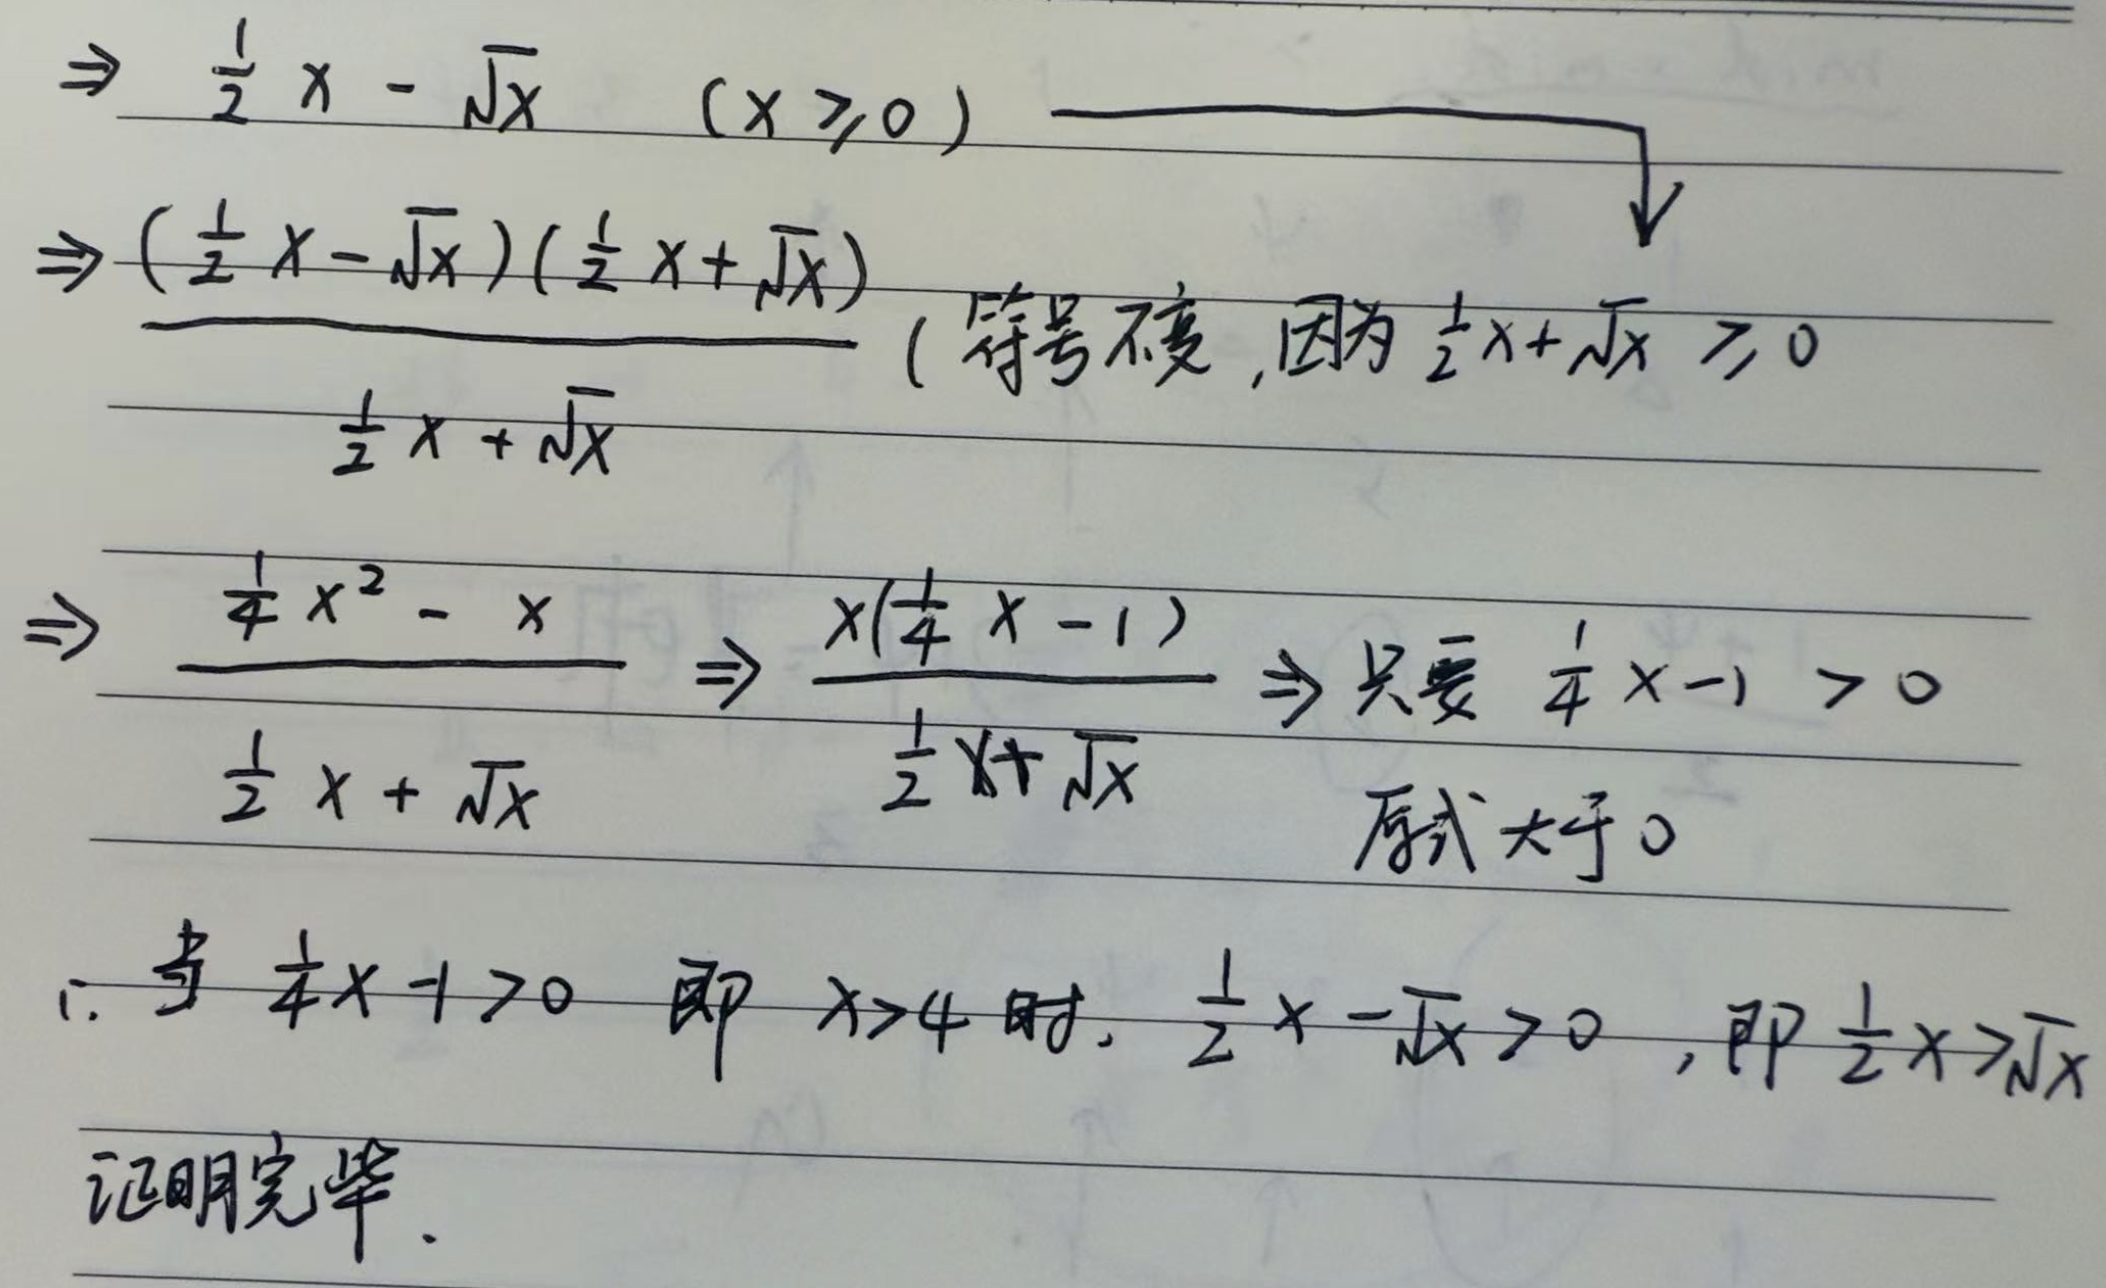 ⇒ 1/2 x - √x (x ≥ 0)
⇒ (1/2 x - √x)(1/2 x + √x) / (1/2 x + √x) (符号不变,因为 1/2 x + √x ≥ 0
⇒ (1/4 x² - x) / (1/2 x + √x) ⇒ x(1/4 x - 1) / (1/2 x + √x) ⇒ 只要 1/4 x - 1 > 0
原式大于0
∴ 当 1/4 x - 1 > 0 即 x > 4 时, 1/2 x - √x > 0 , 即 1/2 x > √x
证明完毕.